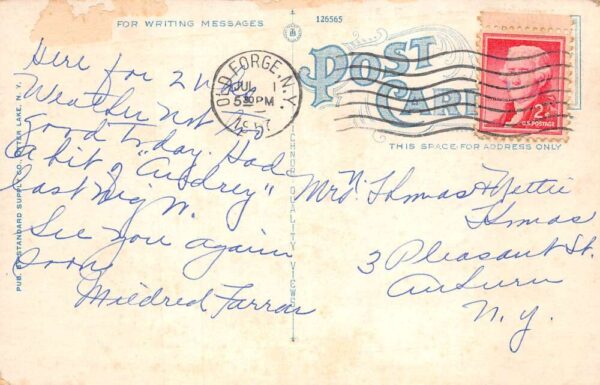 FOR WRITING MESSAGES
126565
Here for 2 wks
Weather not so
good today. Had
a bit of "Audrey"
last nig't.
See you again
soon
Mildred Farrar
PUB. BY STANDARD SUPPLY CO., OTTER LAKE, N.Y.
TICHNOR QUALITY VIEWS
OLD FORGE, N.Y.
JUL 1
5 30 PM
1957
POST
CARD
2¢
U.S. POSTAGE
THIS SPACE FOR ADDRESS ONLY
Thomas & Nettie
Thomas
3 Pleasant St.
Auburn
N.Y.